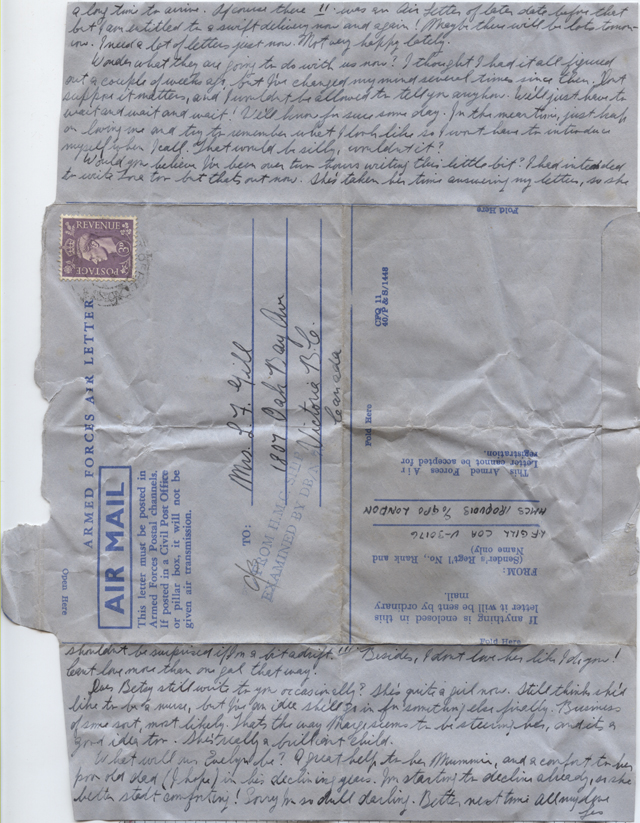 a long time to arrive. Of course there was an Air letter of later date before that
but I am entitled to a swift delivery now and again! Maybe there will be lots tomor-
row. I need a lot of letters just now. Not very happy lately.
Wonder what they are going to do with us now? I thought I had it all figured
out a couple of weeks ago, but I've changed my mind several times since then. Don't
suppose it matters, and I wouldn't be allowed to tell you anyhow. We'll just have to
wait and wait and wait! We'll know for sure some day. In the meantime, just keep
on loving me and try to remember what I look like so I won't have to introduce
myself when I call. That would be silly, wouldn't it?
Would you believe I've been over two hours writing this little bit? I had intended
to write Lora too but that's out now. She's taken her time answering my letters, so she
REVENUE
3D
POSTAGE
ARMED FORCES AIR LETTER
AIR MAIL
This letter must be posted in
Armed Forces Postal channels.
If posted in a Civil Post Office
or pillar box, it will not be
given air transmission.
TO:
Mrs. L.F. Gill
1807 Oak Bay Ave
Victoria B.C.
Canada
FROM H.M.C. SHIP
EXAMINED BY
Open Here
Fold Here
CFQ 11
40/P & S/1448
Fold Here
This Armed Forces Air
Letter cannot be accepted for
registration.
HMCS IROQUOIS % GPO LONDON
LF GILL CDR V-30176
(Sender's Reg't'l No., Rank and
Name only)
FROM:
If anything is enclosed in this
letter it will be sent by ordinary
mail.
Fold Here
shouldn't be surprised if I'm a bit adrift!!! Besides, I don't love her like I do you!
Can't love more than one gal that way!
Does Betsy still write to you occasionally? She's quite a girl now. Still think she'd
like to be a nurse, but I've an idea she'll go in for something else finally. Business
of some sort, most likely. That's the way Marge seems to be steering her, and it's a
good idea too. She's really a brilliant child.
What will our Evelyn be? A great help to her Mummie, and a comfort to her
poor old dad (I hope) in his declining years. I'm starting to decline already, so she
better start comforting! Sorry I'm so dull darling. Better next time. All my love
Les